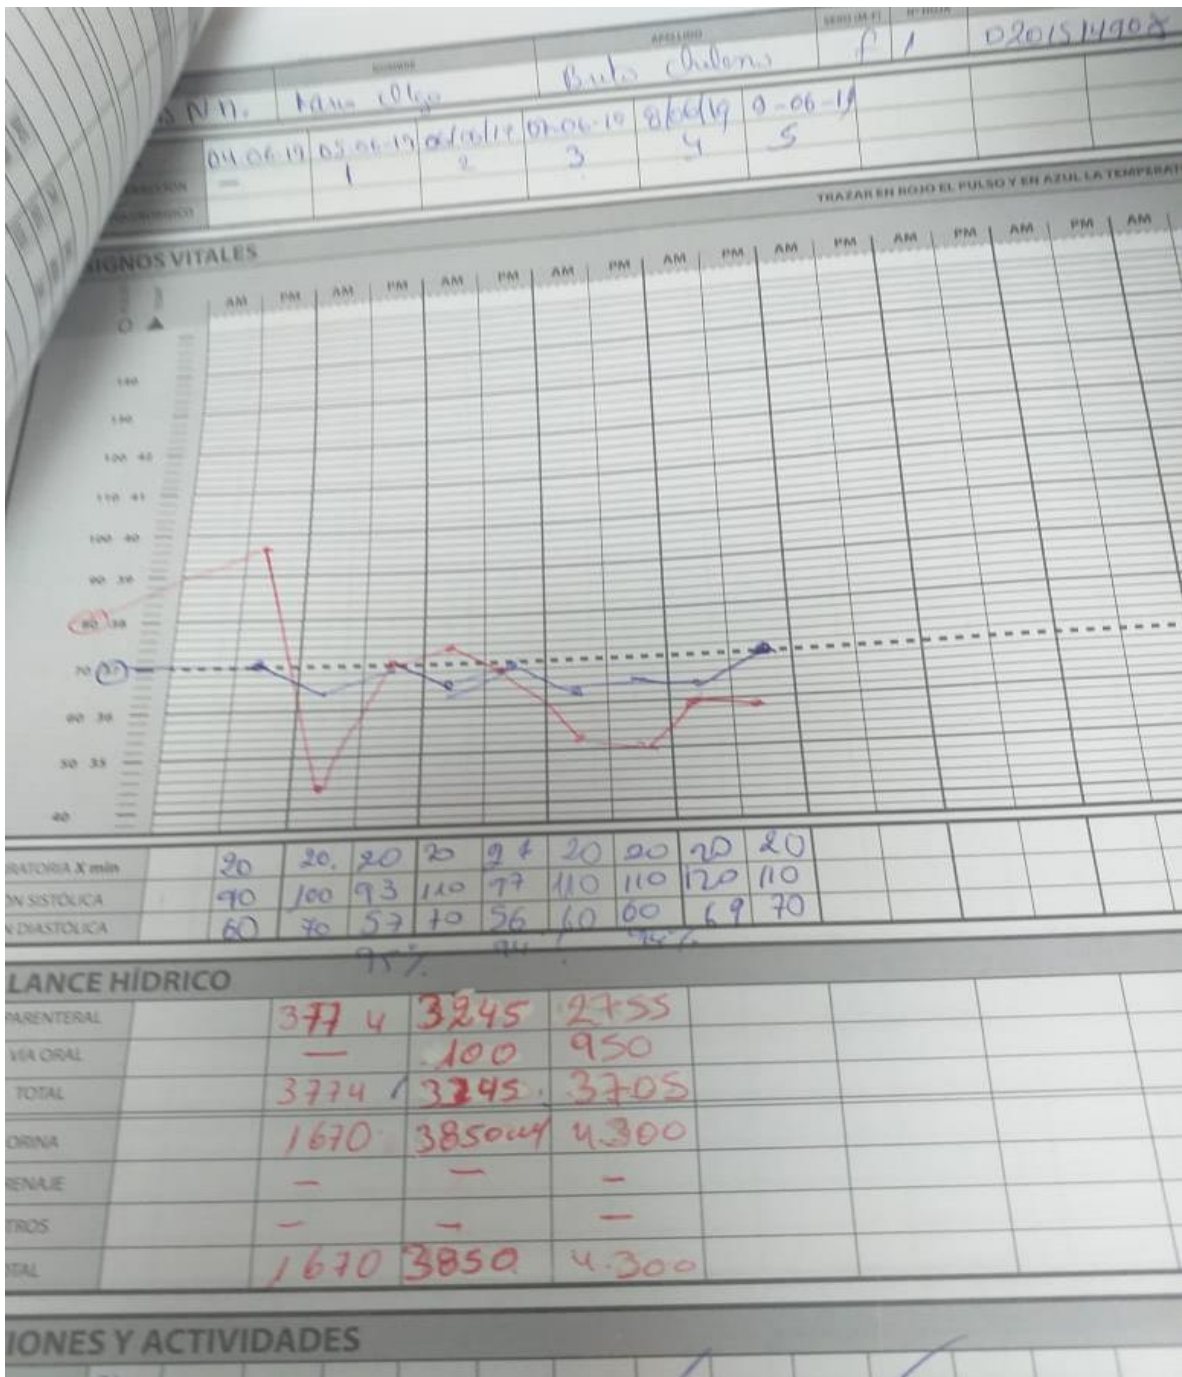 APELLIDO Nº HOJA
NOMBRE
N.N. Bulo f 1
04-06-19 05-06-19 06/06/19 07-06-19 8/06/19 9-06-19
— 1 2 3 4 5
TRAZAR EN ROJO EL PULSO Y EN AZUL LA TEMPERAT
SIGNOS VITALES
AM PM AM PM AM PM AM PM AM PM AM PM AM PM AM PM AM
140
130
110 41
100 40
90 39
80 38
70 37
60 36
50 35
40
RATORIA X min 20 20. 20 20 20 20 20 20
ON SISTÓLICA 90 100 93 110 97 110 110 120 110
N DIASTÓLICA 60 70 57 70 56 60 60 69 70
95% 94 94%
LANCE HÍDRICO
PARENTERAL 3774 3245 2755
VIA ORAL — 100 950
TOTAL 3774 3245. 3705
ORINA 1670 3850 4.300
RENAJE — — —
TROS — — —
TAL 1670 3850 4.300
IONES Y ACTIVIDADES